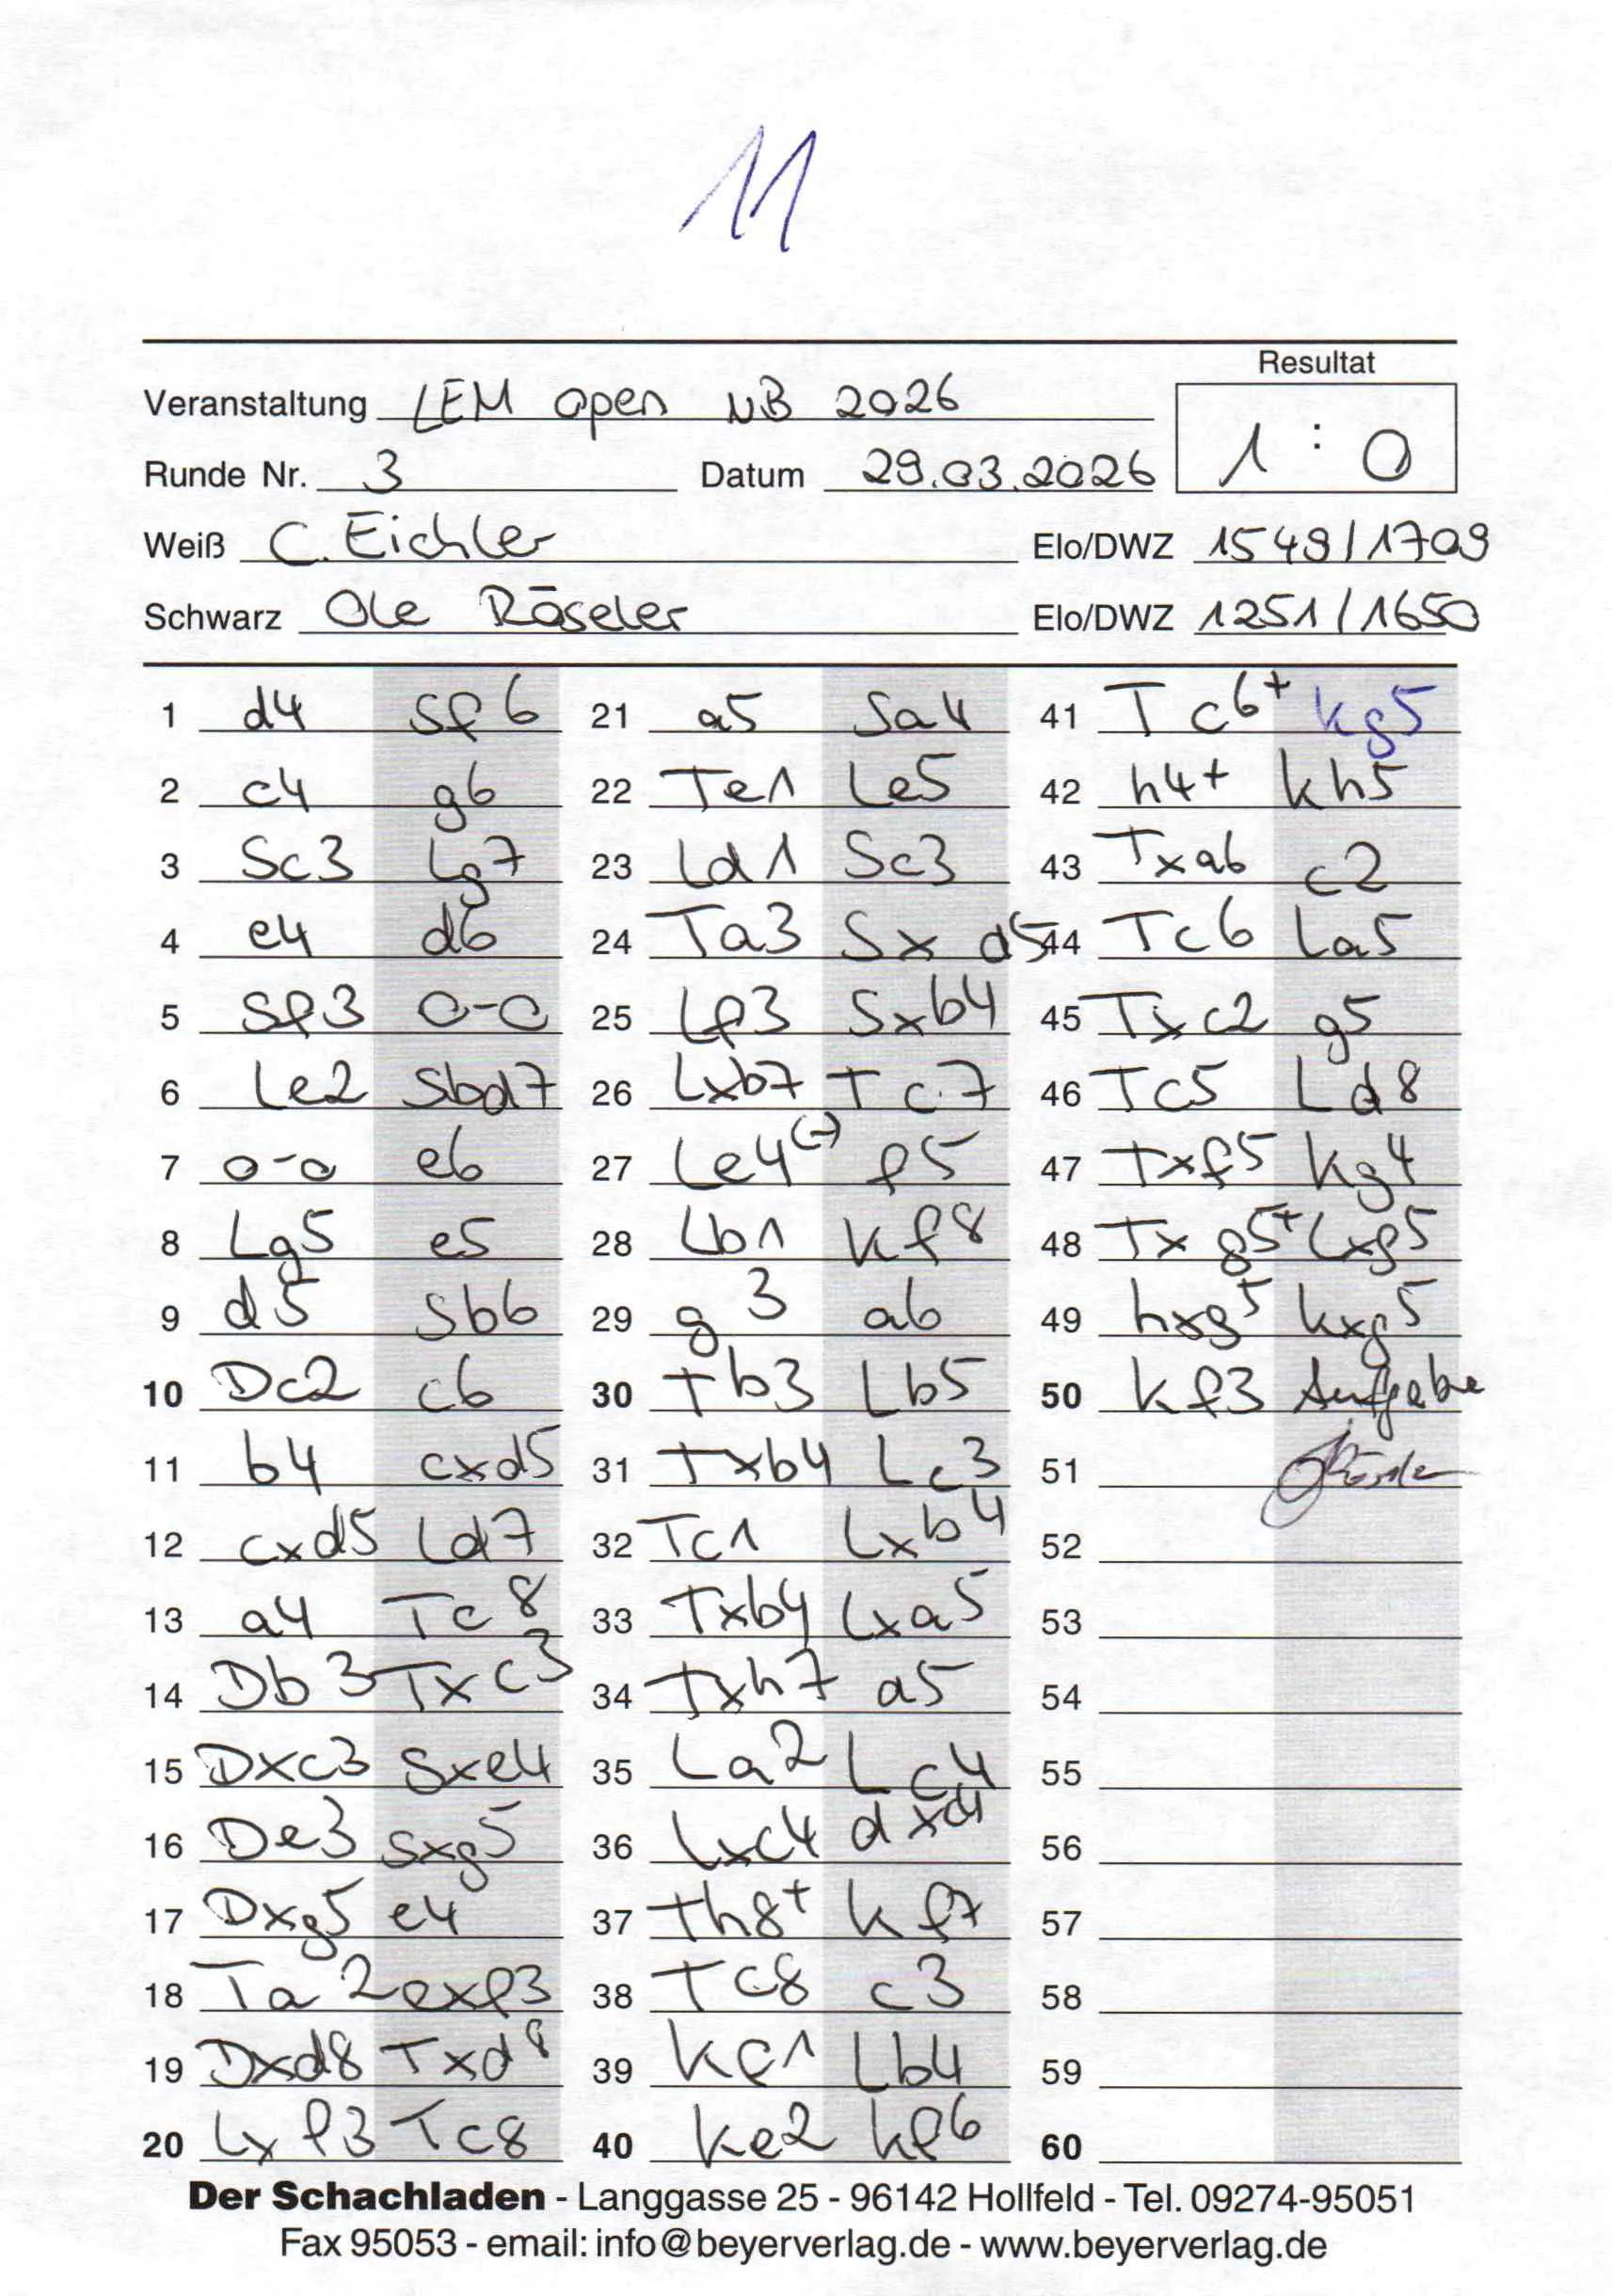 11
Resultat
Veranstaltung LEM open NB 2026
1 : 0
Runde Nr. 3 Datum 29.03.2026
Weiß C. Eichler Elo/DWZ 1549/1709
Schwarz Ole Röseler Elo/DWZ 1251/1650
1 d4 Sf6 21 a5 Sa4 41 Tc6+ Kg5
2 c4 g6 22 Te1 Le5 42 h4+ Kh5
3 Sc3 Lg7 23 Ld1 Sc3 43 Txa6 c2
4 e4 d6 24 Ta3 Sxd5 44 Tc6 La5
5 Sf3 0-0 25 Lf3 Sxb4 45 Txc2 g5
6 Le2 Sbd7 26 Lxb7 Tc7 46 Tc5 Ld8
7 0-0 e6 27 Le4(-) f5 47 Txf5 Kg4
8 Lg5 e5 28 Lb1 Kf8 48 Txg5+ Lxg5
9 d5 Sb6 29 g3 a6 49 hxg5 Kxg5
10 Dc2 c6 30 Tb3 Lb5 50 Kf3 Aufgabe
11 b4 cxd5 31 Txb4 Lc3 51
12 cxd5 Ld7 32 Tc1 Lxb4 52
13 a4 Tc8 33 Txb4 Lxa5 53
14 Db3 Txc3 34 Txh7 a5 54
15 Dxc3 Sxe4 35 La2 Lc4 55
16 De3 Sxg5 36 Lxc4 dxc4 56
17 Dxg5 e4 37 Th8+ Kf7 57
18 Ta2 exf3 38 Tc8 c3 58
19 Dxd8 Txd8 39 Kf1 Lb4 59
20 Lxf3 Tc8 40 Ke2 Kf6 60
Der Schachladen - Langgasse 25 - 96142 Hollfeld - Tel. 09274-95051
Fax 95053 - email: info@beyerverlag.de - www.beyerverlag.de